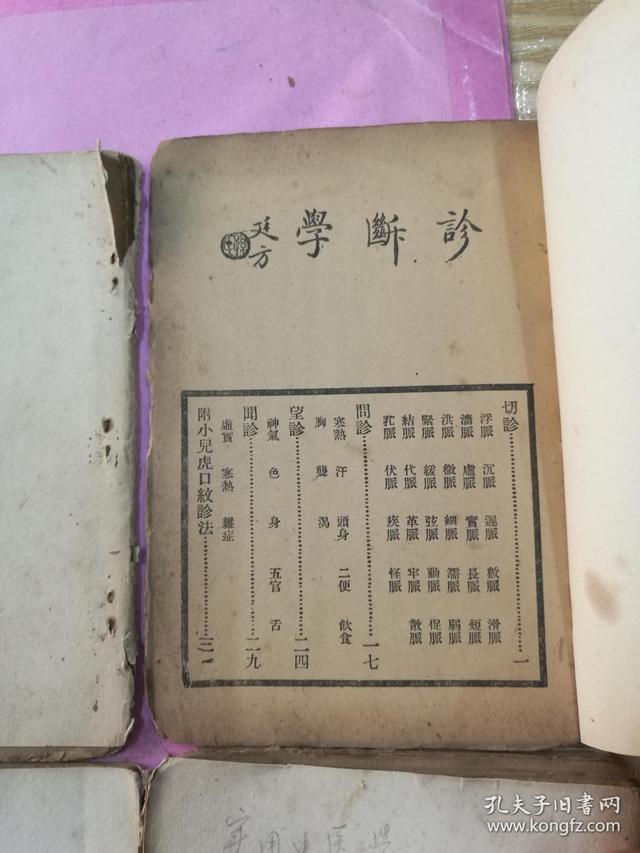 診斷學
廷方
切診……一
浮脈 沉脈 遲脈 數脈 滑脈
濇脈 虛脈 實脈 長脈 短脈
洪脈 微脈 細脈 濡脈 弱脈
緊脈 緩脈 弦脈 動脈 促脈
結脈 代脈 革脈 牢脈 散脈
芤脈 伏脈 疾脈 怪脈
問診……一七
寒熱 汗 頭身 二便 飲食
胸 聾 渴
望診……二四
神氣 色 身 五官 舌
聞診……二九
虛實 寒熱 雜症
附小兒虎口紋診法……三一
实用中医
孔夫子旧书网
www.kongfz.com